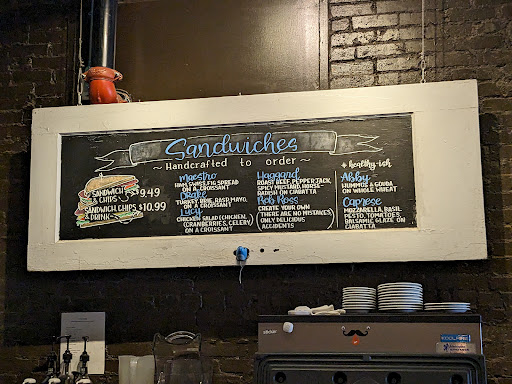 Sandwiches
~ Handcrafted to order ~
SANDWICH & CHIPS $9.49
SANDWICH, CHIPS & DRINK $10.99
Maestro
HAM, SWISS, FIG SPREAD
ON A CROISSANT
Drake
TURKEY, BRIE, RASP. MAYO,
ON A CROISSANT
Lucy
CHICKEN SALAD (CHICKEN,
CRANBERRIES, CELERY)
ON A CROISSANT
Haggard
ROAST BEEF, PEPPER JACK,
SPICY MUSTARD, HORSE
RADISH ON CIABATTA
Bob Ross
CREATE YOUR OWN
(THERE ARE NO MISTAKES,
ONLY DELICIOUS
ACCIDENTS)
* healthy-ish
Abby
HUMMUS & GOUDA
ON WHOLE WHEAT
Caprese
MOZZARELLA, BASIL,
PESTO, TOMATOES,
BALSAMIC GLAZE ON
CIABATTA